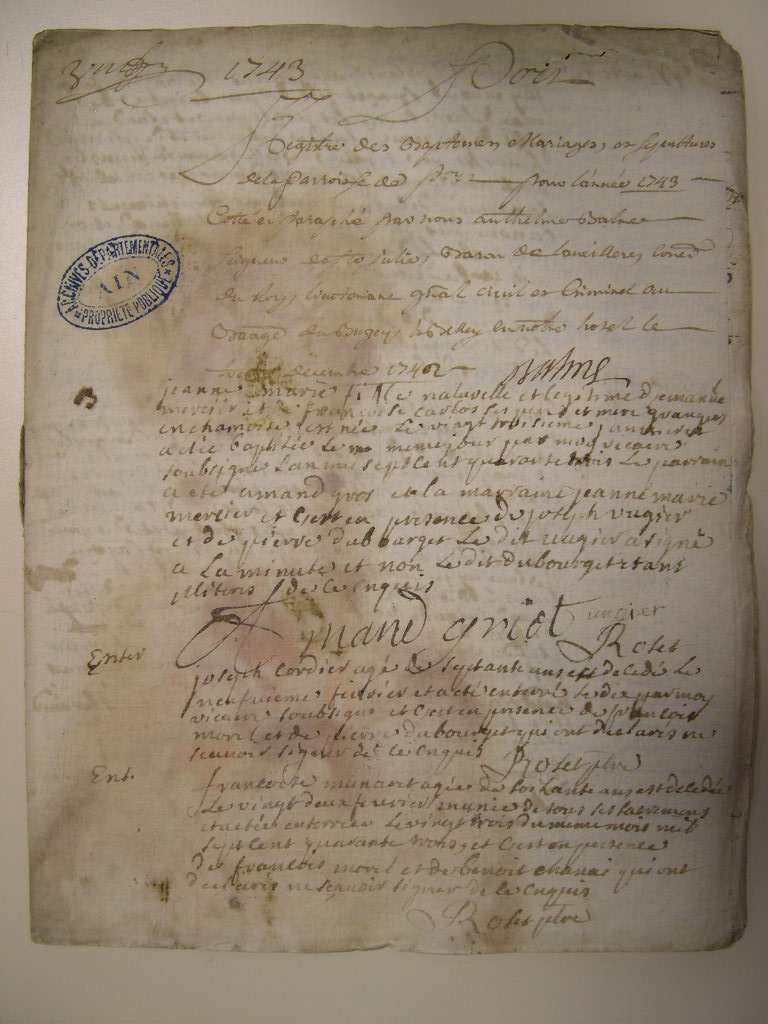 1743
Registre des Baptemes Mariages, et sepultures
de la Parroisse de pour l'année 1743
Cotté et Paraphé par nous anthelme Balme
seigneur de St julies Baron de
du Roy Lieutenant gñal Civil et Criminel au
Baliage du Bugey à Belley en notre hotel le
décembre 1742
Balme
ARCHIVES DÉPARTEMENTALES
AIN
PROPRIÉTÉ PUBLIQUE
B
jeanne marie fille naturelle et legitime
mercier et françoise carlos ses pere et mere grangers
en est née le vingt troisieme janvier et
a etée baptisée le meme jour par moy vicaire
soubsigné lan mil sept cent quarante trois le parrain
a eté amand et la marraine jeanne marie
mercier et c'est en presence de joseph vugier
et de pierre dubourget le dit vugier a signé
a la minute et non le dit dubourget etant
illiteré de ce enquis
Amand griot vugier
Roset
Enter
joseph cordier agé de septante ans est decedé le
neufvieme fevrier et a eté enterré le dix par moy
vicaire soubsigné et c'est en presence de françois
morel et de pierre dubourget qui ont declarés ne
scavoir signer de ce enquis
Roset ptre
Ent.
francoise agée de soisante ans est decedée
le vingt deux fevrier munie de tous ses sacremens
et a etée enterrée le vingt trois du meme mois mil
sept cent quarante trois, et c'est en presence
de françois morel et de benoit chanai qui ont
declarés ne scavoir signer de ce enquis
Roset ptre